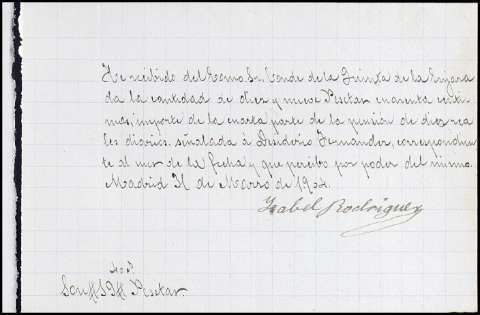 He recibido del Exmo. Sr. Conde de la Quinta de la Enjara
da la cantidad de diez y nueve Pesetas cuarenta centi
mos, importe de la cuarta parte de la pension de diez rea
les diarios, señalada á Desiderio Fernandez, correspondien
te al mes de la fecha y que percibo por poder del mismo.
Madrid 31 de Marzo de 1904.
Isabel Rodriguez
Son 19 Pesetas.